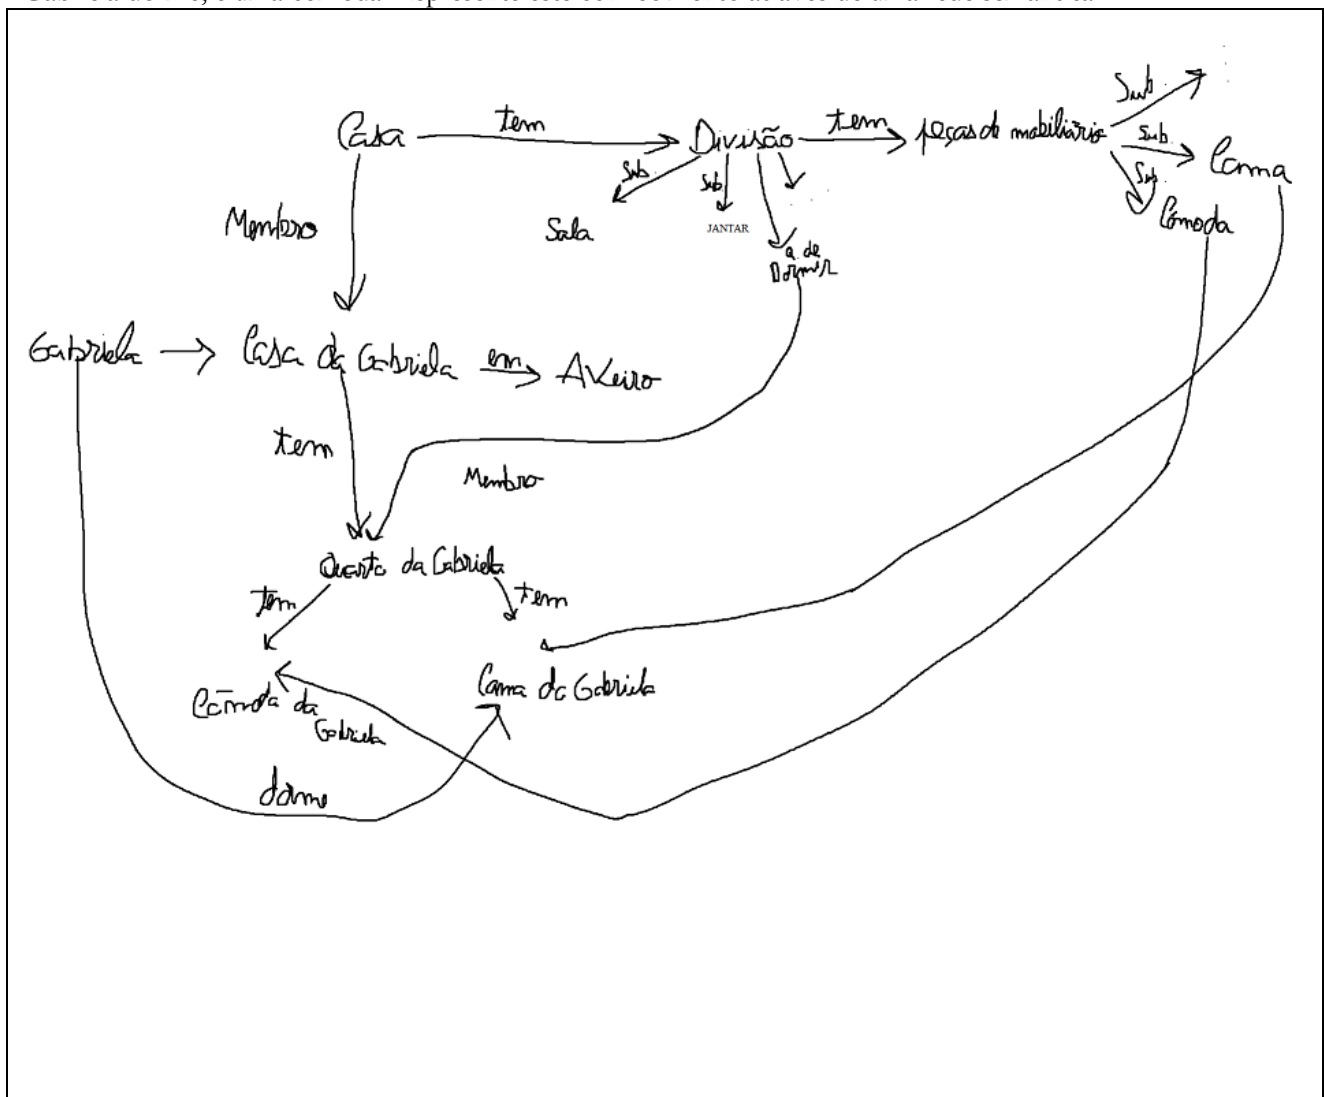 Sub.
Casa tem Divisão tem peças de mobiliário Sub. Cama
Sub. Sub. Sub. Cômoda
Membro Sala JANTAR
q. de
Dormir
Gabriela Casa da Gabriela em Aveiro
tem
Membro
Quarto da Gabriela
tem tem
Cômoda da Gabriela
Cama da Gabriela
dorme